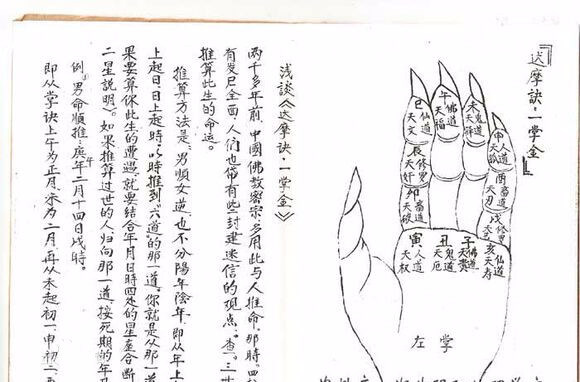 『达摩诀·一掌金』
巳仙道天文
午佛道天福
未鬼道天驿
申人道天孤
辰修罗天奸
酉畜道天刃
卯畜道天破
戌修罗
寅人道天权
丑鬼道天厄
子佛道天贵
亥仙道天寿
左掌
浅谈《达摩诀·一掌金》
两千多年前，中國佛教密宗，多用此与人推命，那时，
有发全面，人们也带有些封建迷信的观点。查，三
推算此生的命运。
推算方法是：男顺女逆，也不分阳年阴年，即从年上
上起日，日上起时，以时推到“六道”的那一道，你就是从那一
果要算你此生的遭遇，就要结合年月日时四处的星查合断
二星说明。如果推算过世的人归向那一道，按死期的年
例：男命顺推：庚午年二月十四日戌时。
即从掌诀上午为正月，未为二月，再从未起初一，申初二，